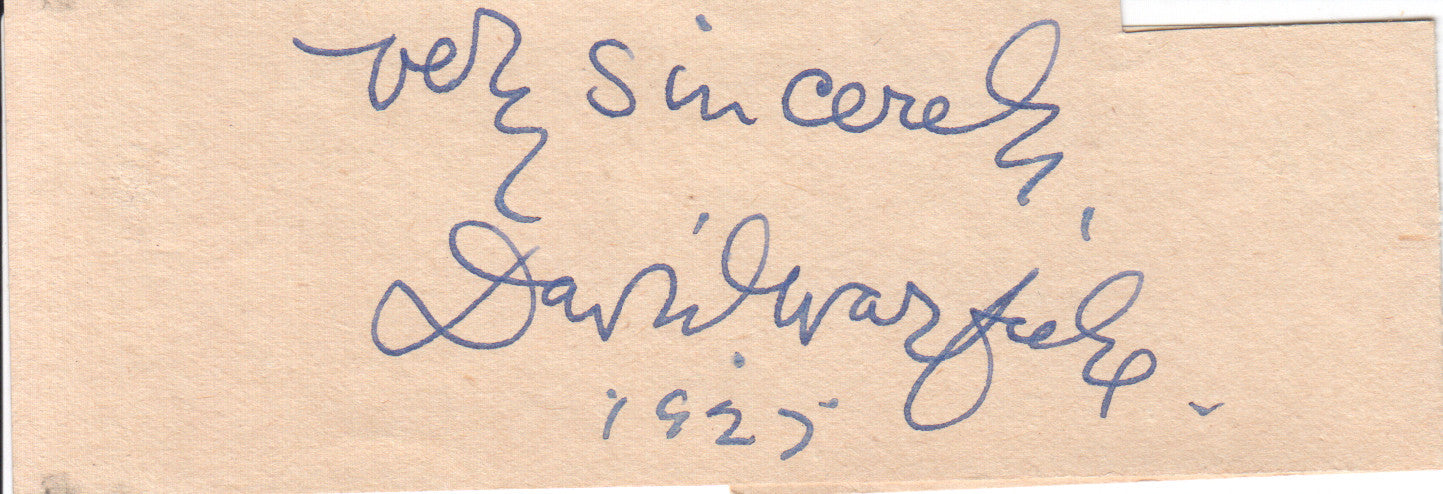 Very Sincerely,
David Warfield.
1925